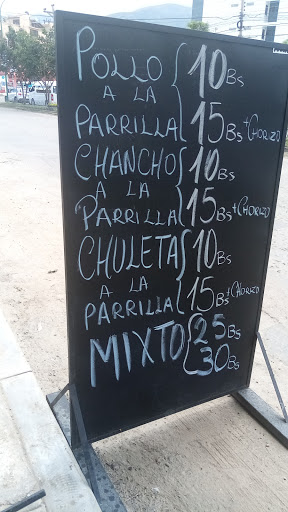 POLLO
A LA
PARRILLA
10 Bs
15 Bs + CHORIZO
CHANCHO
A LA
PARRILLA
10 Bs
15 Bs + CHORIZO
CHULETA
A LA
PARRILLA
10 Bs
15 Bs + CHORIZO
MIXTO
25 Bs
30 Bs